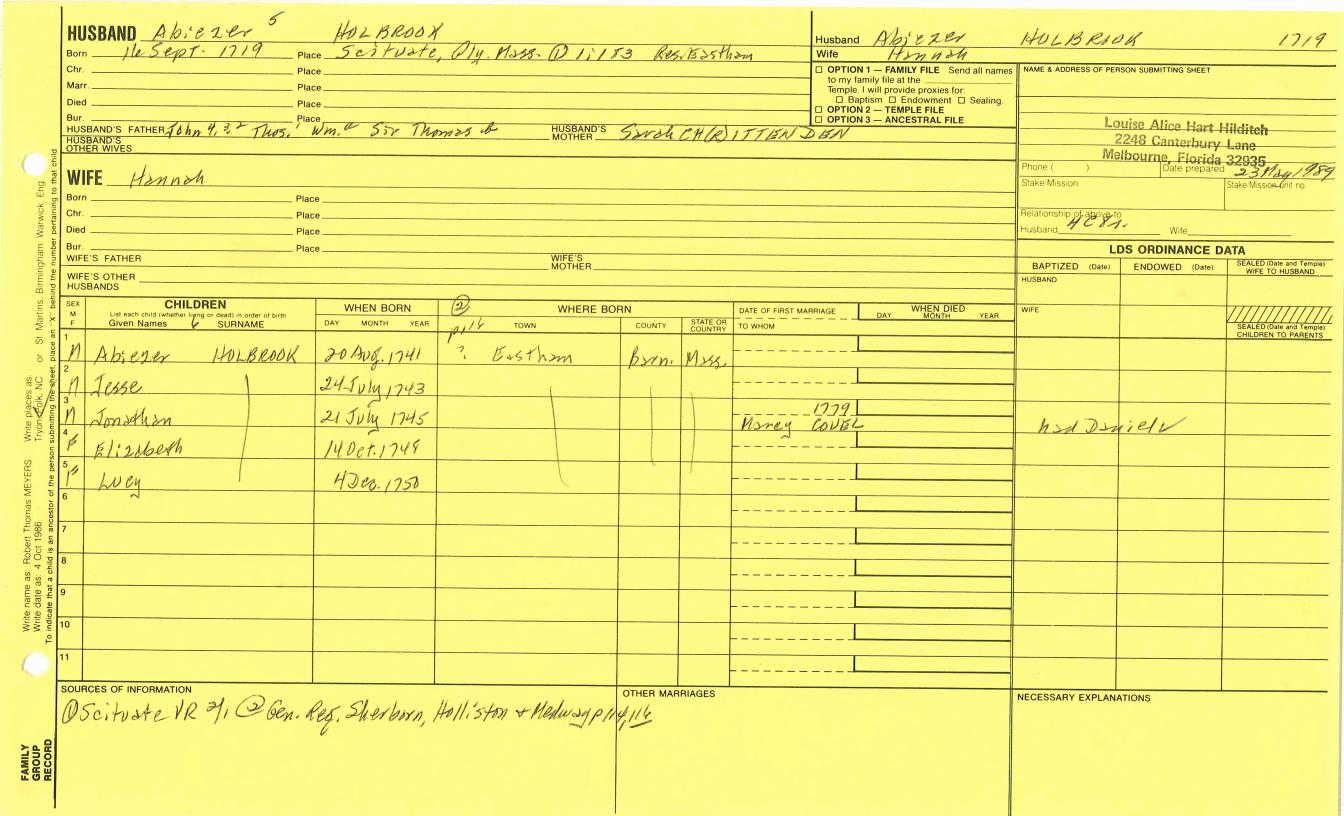 HUSBAND Abiezer 5 HOLBROOK
Born 16 Sept. 1719 Place Scituate, Ply. Mass. ① 1:183 Res. Eastham
Chr. Place
Marr. Place
Died Place
Bur. Place
HUSBAND'S FATHER John 4,3,2 Thos.1 Wm.a Sir Thomas b HUSBAND'S MOTHER Sarah CH(R)ITTENDEN
HUSBAND'S OTHER WIVES
WIFE Hannah
Born Place
Chr. Place
Died Place
Bur. Place
WIFE'S FATHER WIFE'S MOTHER
WIFE'S OTHER HUSBANDS
Husband Abiezer HOLBROOK 1719
Wife Hannah
☐ OPTION 1 — FAMILY FILE Send all names
to my family file at the
Temple. I will provide proxies for:
☐ Baptism ☐ Endowment ☐ Sealing.
☐ OPTION 2 — TEMPLE FILE
☐ OPTION 3 — ANCESTRAL FILE
NAME & ADDRESS OF PERSON SUBMITTING SHEET
Louise Alice Hart Hilditch
2248 Canterbury Lane
Melbourne, Florida 32935
Phone ( ) Date prepared 23 May 1989
Stake/Mission Stake/Mission unit no.
Relationship of above to
Husband Wife
LDS ORDINANCE DATA
BAPTIZED (Date) ENDOWED (Date) SEALED (Date and Temple) WIFE TO HUSBAND
HUSBAND
WIFE
SEALED (Date and Temple) CHILDREN TO PARENTS
SEX M F
CHILDREN
List each child (whether living or dead) in order of birth
Given Names 6 SURNAME
WHEN BORN
DAY MONTH YEAR
② p116
WHERE BORN
TOWN COUNTY STATE OR COUNTRY
DATE OF FIRST MARRIAGE
TO WHOM
WHEN DIED
DAY MONTH YEAR
1 M Abiezer HOLBROOK 20 Aug. 1741 ? Eastham Barn. Mass.
2 M Jesse 24 July 1743
3 M Jonathan 21 July 1745 1779
Marcy COVEL had Daniel ✓
4 F Elizabeth 14 Oct. 1748
5 F Lucy 4 Dec. 1750
6
7
8
9
10
11
SOURCES OF INFORMATION
① Scituate VR 2/1 ② Gen. Reg. Sherborn, Holliston + Medway p 114, 116
OTHER MARRIAGES
NECESSARY EXPLANATIONS
Write name as: Robert Thomas MEYERS Write places as: Tryon, Polk, NC or St Martins, Birmingham, Warwick, Eng
Write date as: 4 Oct 1986
To indicate that a child is an ancestor of the person submitting the sheet, place an "X" behind the number pertaining to that child
FAMILY
GROUP
RECORD